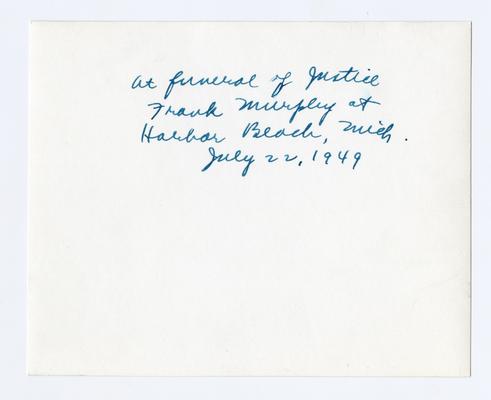 At funeral of Justice
Frank Murphy at
Harbor Beach, Mich.
July 22, 1949